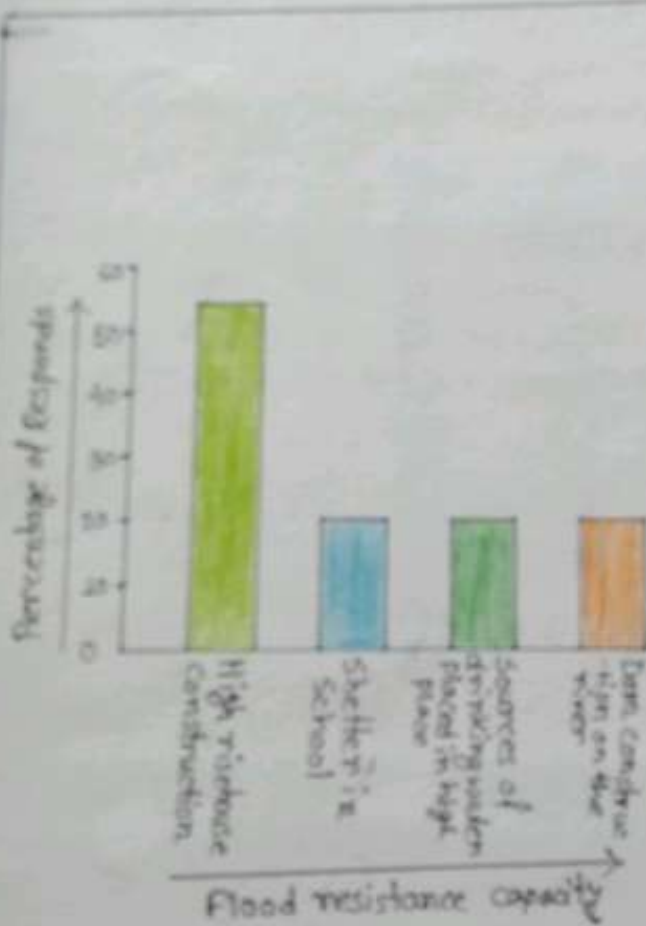 Percentage of Responds
60
50
40
30
20
10
0
High rise house
construction
Shelter in
School
Sources of
drinking water
placed in high
place
Dam construc
-tion on the
river
Flood resistance capacity